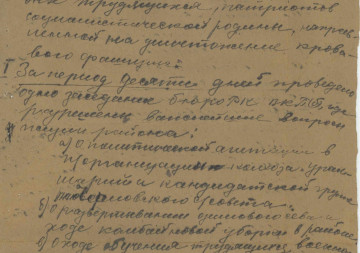 трудящихся, патриотов
социалистической родины, направ
ленной на уничтожение крова
вого фашизма.
I За период десяти дней проведено
одно заседание бюро РК ВКП(б), где
разрешены важнейшие вопросы
жизни района:
а) О политической агитации в
парторганизации колхоза
и кандидатской группе
сельсовета.
б) О развертывании
ходе комбайновой уборки в районе
в) О ходе обучения трудящихся военному